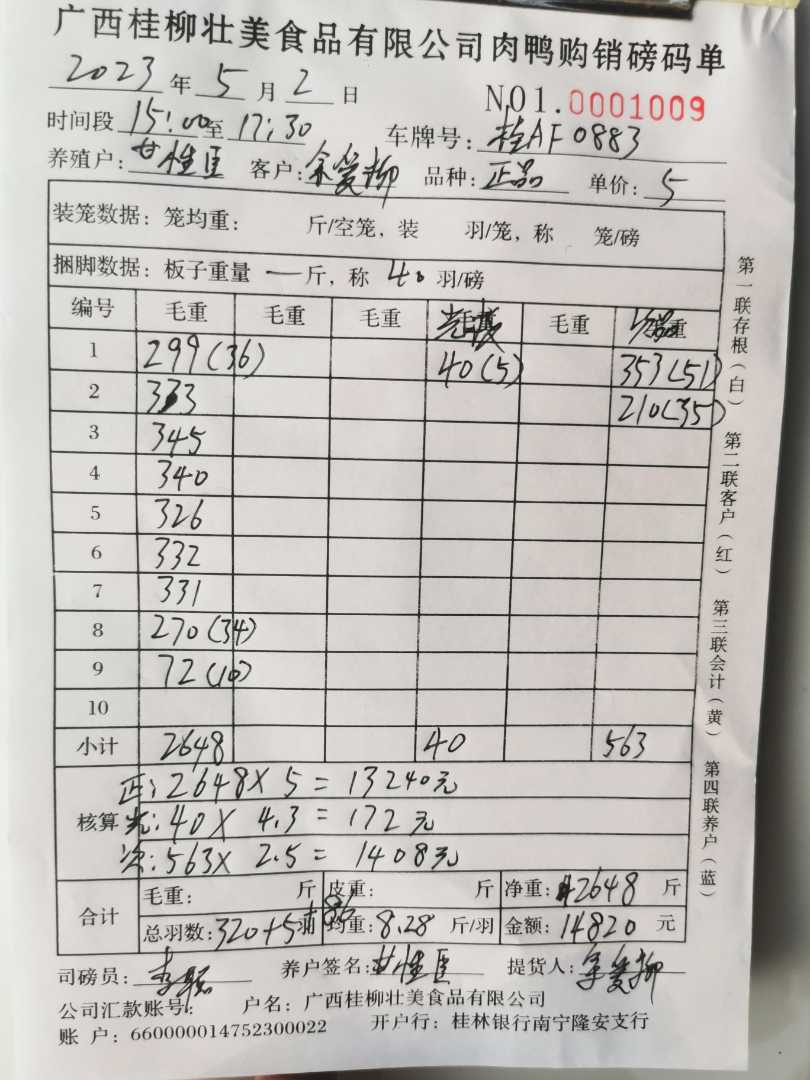 广西桂柳壮美食品有限公司肉鸭购销磅码单
2023 年 5 月 2 日 NO1.0001009
时间段 15:00 至 17:30 车牌号: 桂AF0883
养殖户: 甘桂臣 客户: 余爱柳 品种: 正品 单价: 5
装笼数据: 笼均重: 斤/空笼, 装 羽/笼, 称 笼/磅
捆脚数据: 板子重量 一 斤, 称 40 羽/磅
编号 毛重 毛重 毛重 毛重 次品
1 299(36) 40(5) 353(51)
2 333 210(35)
3 345
4 340
5 326
6 332
7 331
8 270(34)
9 72(10)
10
小计 2648 40 563
核算 正: 2648X 5 = 13240元
光: 40 X 4.3 = 172 元
次: 563X 2.5 = 1408元
合计 毛重: 斤 皮重: 斤 净重: 2648 斤
总羽数: 320+5+86 羽 均重: 8.28 斤/羽 金额: 14820 元
司磅员: 养户签名: 甘桂臣 提货人: 余爱柳
公司汇款账号: 户名: 广西桂柳壮美食品有限公司
账 户: 660000014752300022 开户行: 桂林银行南宁隆安支行
第一联存根(白) 第二联客户(红) 第三联会计(黄) 第四联养户(蓝)